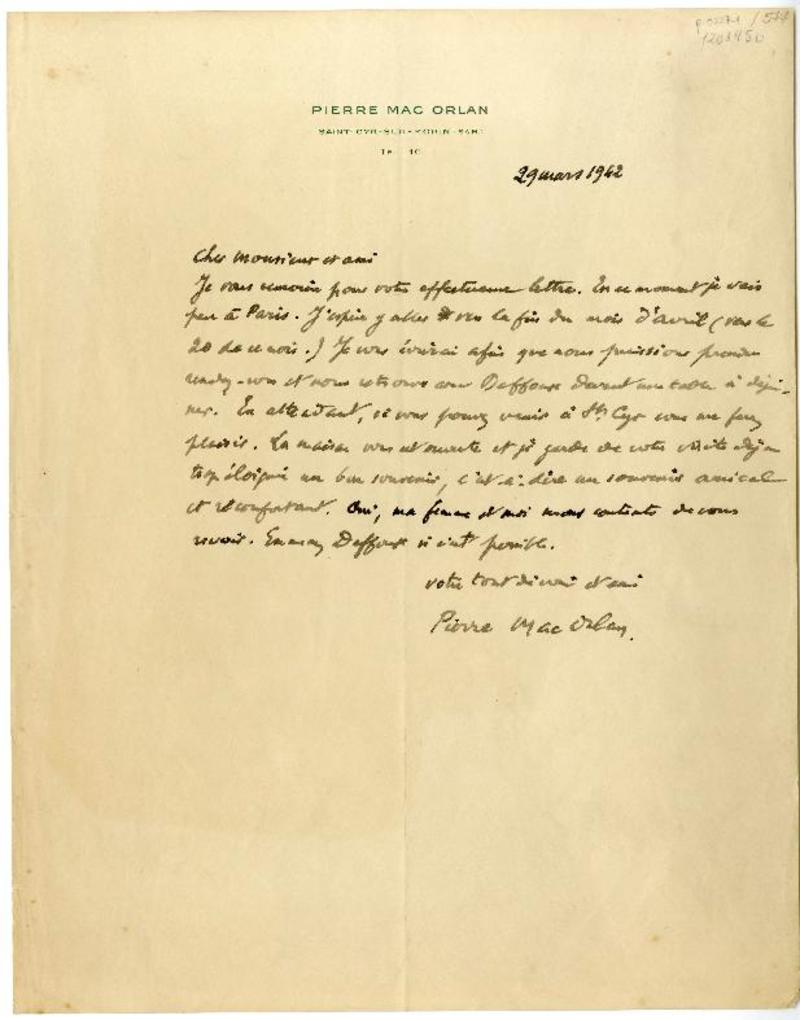 1203450
PIERRE MAC ORLAN
SAINT-CYR-SUR-MORIN
29 mars 1942
Cher Monsieur et ami
Je vous remercie pour votre affectueuse lettre. En ce moment je vais
peu à Paris. J'espère y aller vers la fin du mois d'avril (vers le
20 de ce mois.) Je vous écrirai afin que nous puissions prendre
rendez-vous et nous retrouver avec Deffoux devant une table à déjeu-
ner. En attendant, si vous pouvez venir à St Cyr vous me ferez
plaisir. La maison vous est ouverte et je garde de votre visite déjà
trop éloignée un bon souvenir, c'est-à-dire un souvenir amical
et réconfortant. Oui, ma femme et moi serons contents de vous
revoir. Emmenez Deffoux si c'est possible.
votre tout dévoué et ami
Pierre Mac Orlan.